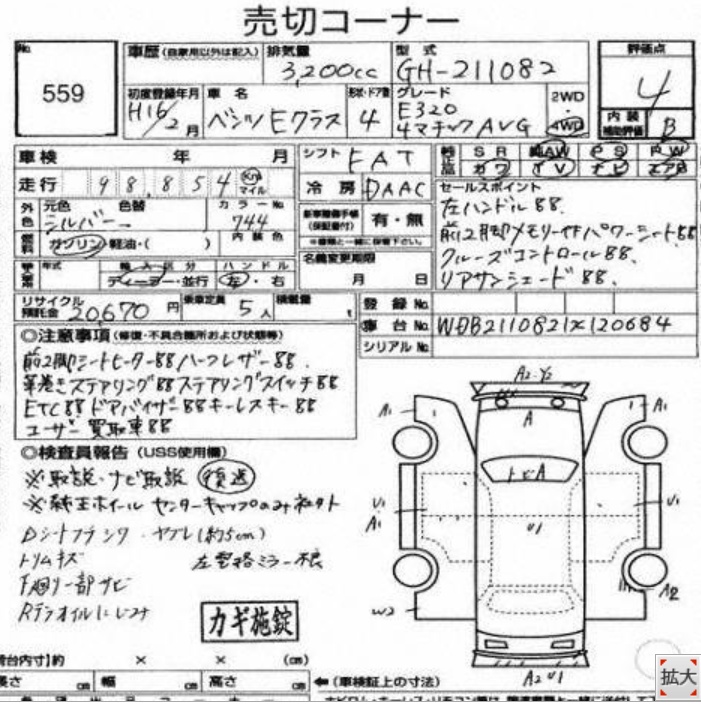 売切コーナー
No.
559
車歴 (自家用以外は記入)
排気量
3,200cc
型式
GH-211082
評価点
4
内装補助評価
B
初度登録年月
H16/2月
車名
ベンツ Eクラス
形状・ドア数
4
グレード
E320
4マチック AVG
2WD
4WD
車検 年 月
シフト FAT
純正品
SR 純AW PS PW
カワ TV ナビ エアB
走行 98,854 Km マイル
冷房 DAAC
セールスポイント
左ハンドル88.
前2脚メモリー付パワーシート88
クルーズコントロール88.
リアサンシェード88.
外色
元色 色替
シルバー
カラーNo.
744
内装色
新車整備手帳(保証書付) 有・無
※書類と一緒に保管下さい。
燃料 ガソリン・軽油・( )
名義変更期限
月 日
年式
輸入区分
ディーラー・並行
ハンドル
左・右
リサイクル預託金 20,670円
乗車定員 5人
積載量 t
登録No.
車台No. WDB2110821X120684
シリアルNo.
◎注意事項 (修復・不具合箇所および状態等)
前2脚シートヒーター88 ハーフレザー88.
革巻きステアリング88 ステアリングスイッチ88
ETC88 ドアバイザー88 キーレスキー88
ユーザー買取車88
◎検査員報告 (USS使用欄)
※取説・ナビ取説 後送
※純正ホイール センターキャップのみ社外
Dシート ヤブレ(約5cm)
トリムキズ
左電格ミラー不良
下廻り一部サビ
Rデフオイルにじみ
カギ施錠
A2・Y2
A1
A
A1
トビA
U1
A1
U1
U1
W2
A2
A2 U1
荷台内寸)約 × × (cm)
長さ cm 幅 cm 高さ cm
←(車検証上の寸法)
拡大